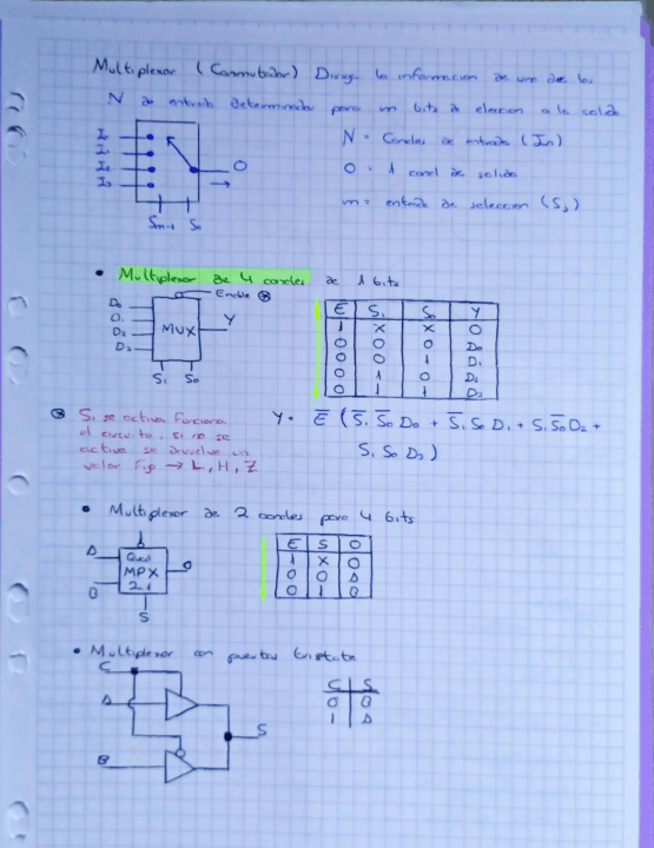 Multiplexor (Conmutador) Dirige la informacion de uno de los
N de entrada determinado para m bits de eleccion a la salida
I0
I1
I2
I3
O
Sm-1 S0
N = Canales de entrada (In)
O = 1 canal de salida
m = entrada de seleccion (Ss)
• Multiplexor de 4 canales de 1 bits
Enable ⊛
D0
D1
D2
D3
MUX
Y
S1 S0
E S1 S0 Y
1 X X 0
0 0 0 D0
0 0 1 D1
0 1 0 D2
0 1 1 D3
⊛ Si se activa funciona
el circuito, si no se
activa se devuelve un
valor fijo → L, H, Z
Y = E̅ (S̅1 S̅0 D0 + S̅1 S0 D1 + S1 S̅0 D2 +
S1 S0 D3)
• Multiplexor de 2 canales para 4 bits
A
B
Quad
MPX
2:1
O
S
E S O
1 X 0
0 0 A
0 1 B
• Multiplexor con puertas tristate
C
A
B
S
C S
0 B
1 A